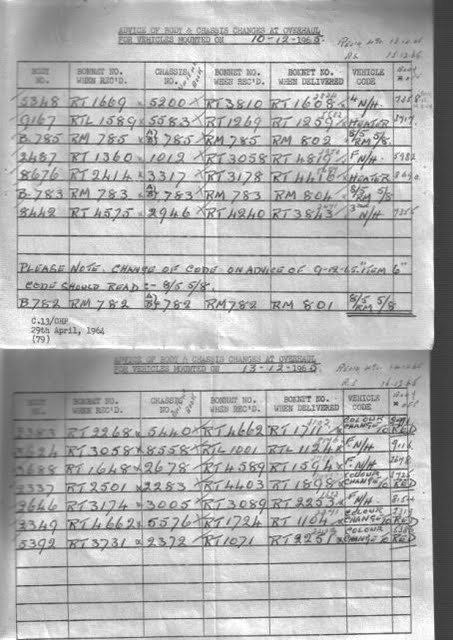 ADVICE OF BODY & CHASSIS CHANGES AT OVERHAUL
FOR VEHICLES MOUNTED ON 10-12-1965.
BODY NO. BONNET NO. WHEN REC'D. CHASSIS NO. BONNET NO. WHEN REC'D. BONNET NO. WHEN DELIVERED VEHICLE CODE
5348 RT 1669 5200 RT 3810 RT 1608 N/H
9167 RTL 1589 5583 RT 1269 RT 1259 HEATER
B.785 RM 785 785 RM 785 RM 802 8/5 5/8 RM
2487 RT 1360 1012 RT 3058 RT 4819 N/H
8676 RT 2414 3317 RT 3178 RT 4478 HEATER
B.783 RM 783 783 RM 783 RM 804 8/5 5/8 RM
8442 RT 4575 2946 RT 4240 RT 3843 N/H
PLEASE NOTE. CHANGE OF CODE ON ADVICE OF 9-12-65. "ITEM 6"
CODE SHOULD READ :- 8/5 5/8.
B782 RM 782 782 RM 782 RM 801 8/5 5/8 RM
C.13/CHP
29th April, 1964
(79)
ADVICE OF BODY & CHASSIS CHANGES AT OVERHAUL
FOR VEHICLES MOUNTED ON 13-12-1965.
BODY NO. BONNET NO. WHEN REC'D. CHASSIS NO. BONNET NO. WHEN REC'D. BONNET NO. WHEN DELIVERED VEHICLE CODE
RT 2268 5440 RT 4662 RT 1711 COLOUR CHANGE TO RED
3624 RT 3058 8558 RTL 1001 RTL 1124 N/H
3688 RT 1648 2678 RT 4589 RT 1594 N/H
2337 RT 2501 2283 RT 4403 RT 1898 COLOUR CHANGE TO RED
2646 RT 3174 3005 RT 3089 RT 2253 N/H
2349 RT 4662 5576 RT 1724 RT 1104 COLOUR CHANGE TO RED
5392 RT 3731 2372 RT 1071 RT 2251 COLOUR CHANGE TO RED